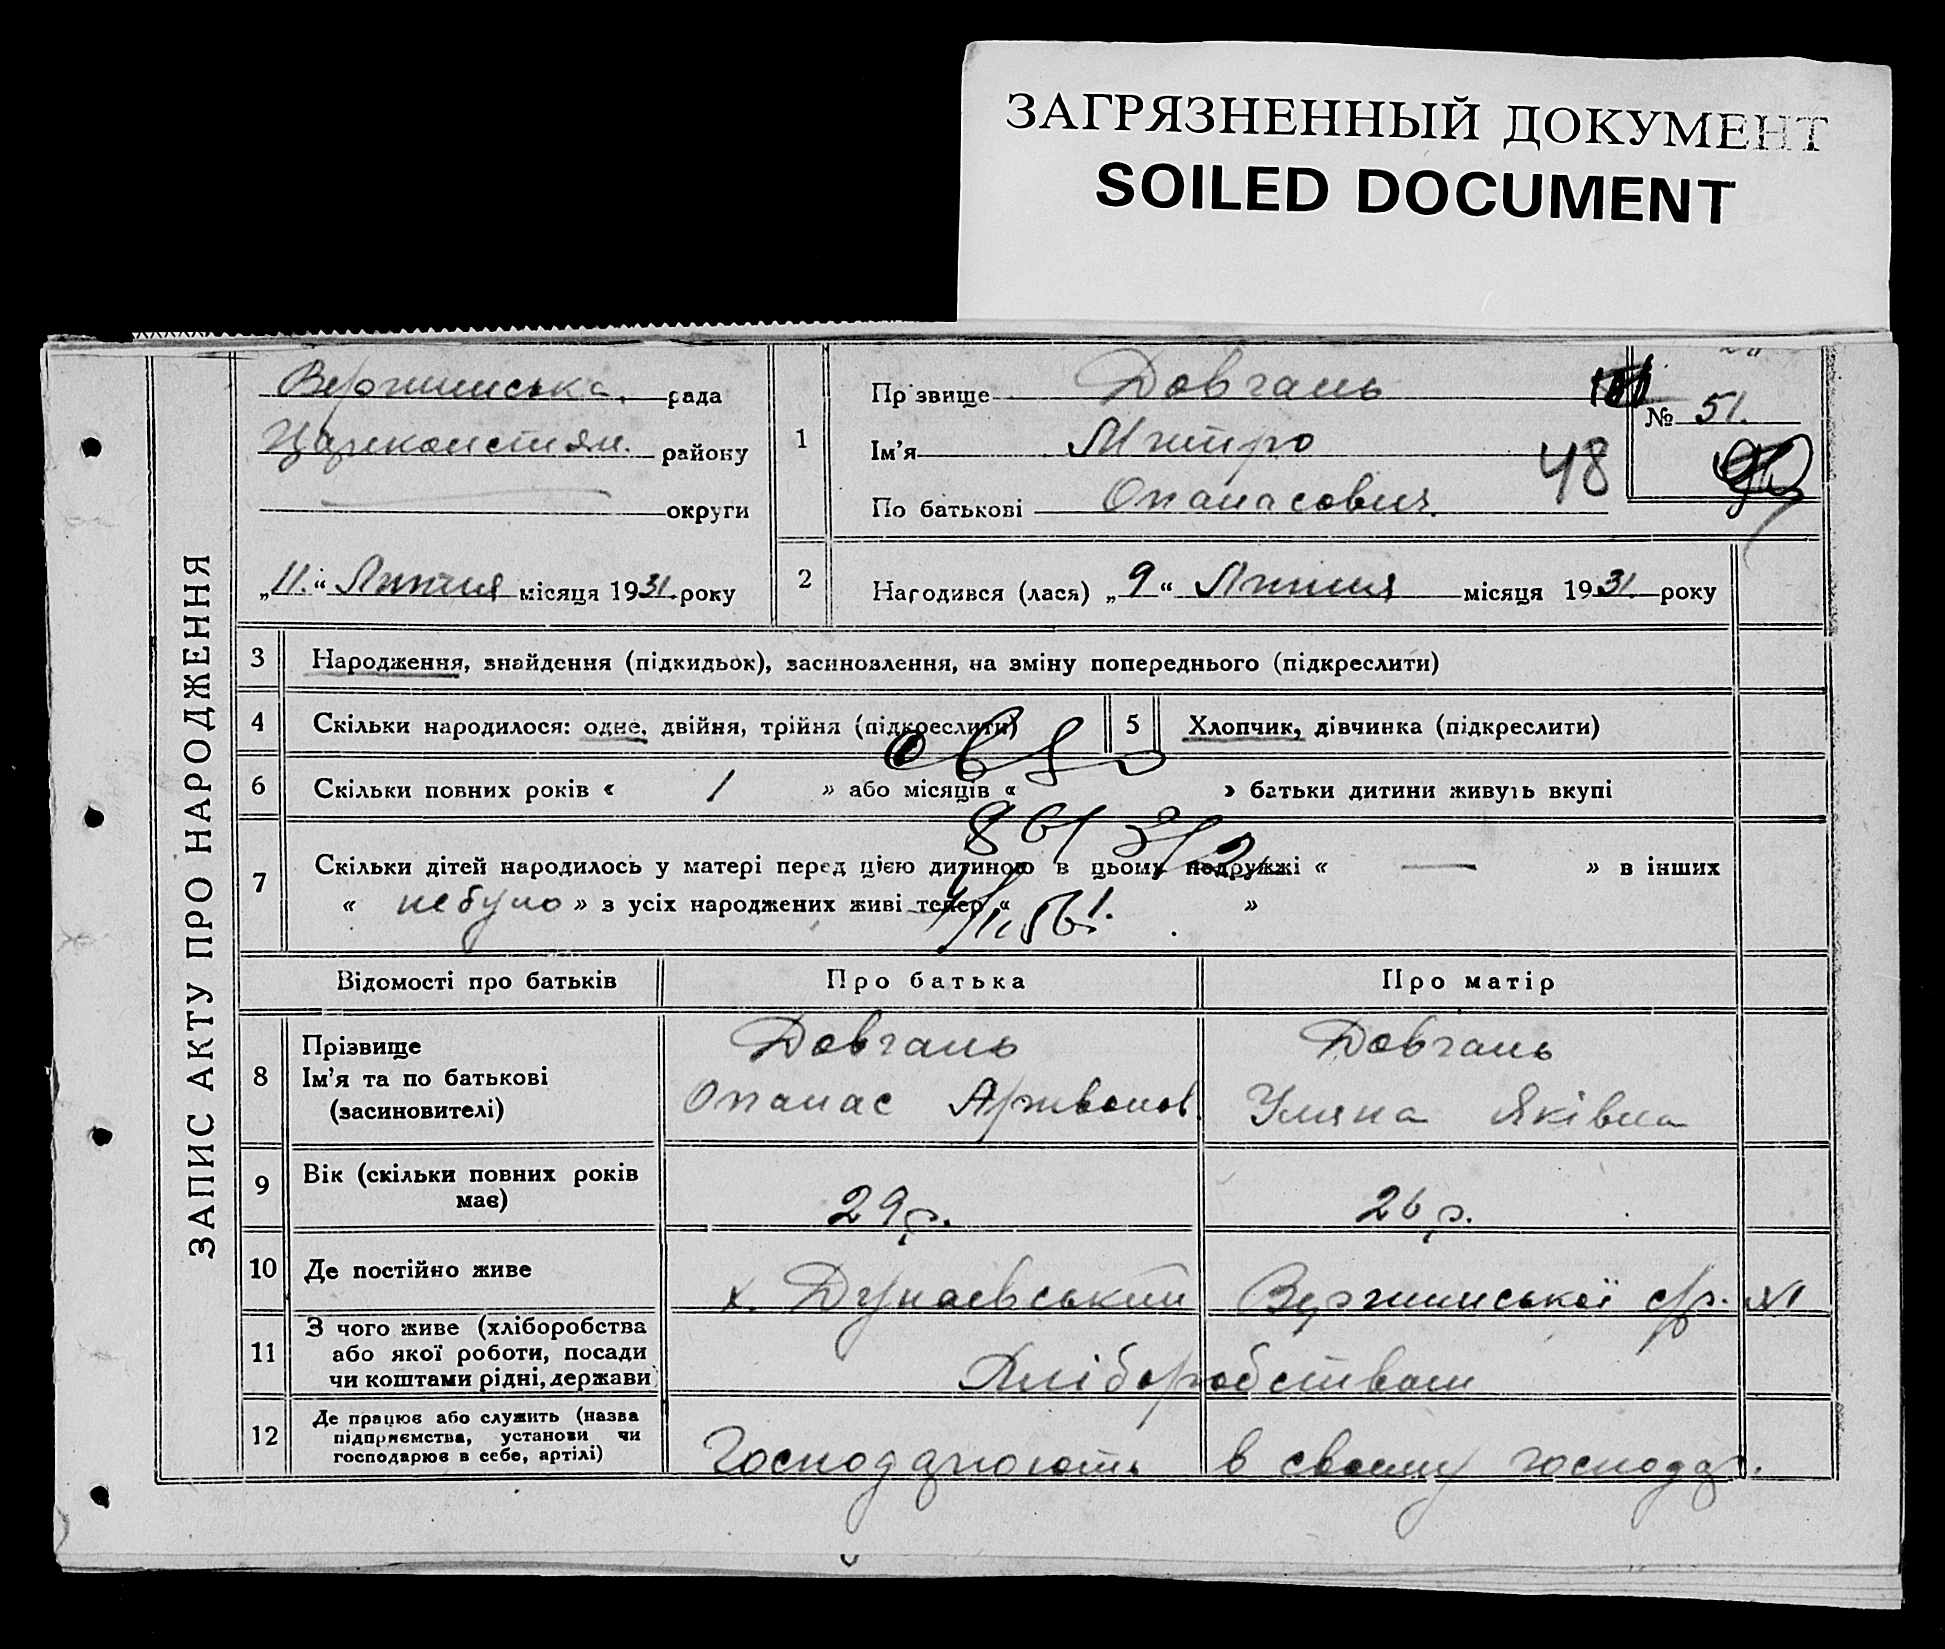 ЗАГРЯЗНЕННЫЙ ДОКУМЕНТ
SOILED DOCUMENT
ЗАПИС АКТУ ПРО НАРОДЖЕННЯ
рада
району
округи
„11“ Липня місяця 1931 року
1
Прізвище Довгань
Ім'я Митро
По батькові Опанасович.
48
№ 51.
2
Народився (лася) „9“ Липня місяця 1931. року
3 Народження, знайдення (підкидьок), засиновлення, на зміну попереднього (підкреслити)
4 Скільки народилося: одне, двійня, трійня (підкреслити)
5 Хлопчик, дівчинка (підкреслити)
6 Скільки повних років « 1 » або місяців « » батьки дитини живуть вкупі
7 Скільки дітей народилось у матері перед цією дитиною в цьому подружжі « — » в інших
« небуло » з усіх народжених живі тепер « »
Відомості про батьків Про батька Про матір
8 Прізвище
Ім'я та по батькові
(засиновителі)
Довгань
Опанас
Довгань
Уляна Яківна
9 Вік (скільки повних років
має)
29 р. 26 р.
10 Де постійно живе х. Дунаєвський
11 З чого живе (хліборобства
або якої роботи, посади
чи коштами рідні, держави)
Хліборобством
12 Де працює або служить (назва
підприємства, установи чи
господарює в себе, артілі)
Господарюють в своему господар.